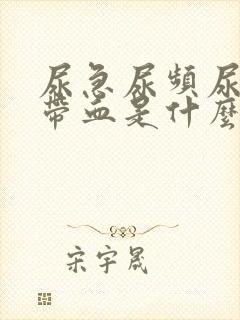 尿急尿頻尿
帶血是什麼
宋宇晟